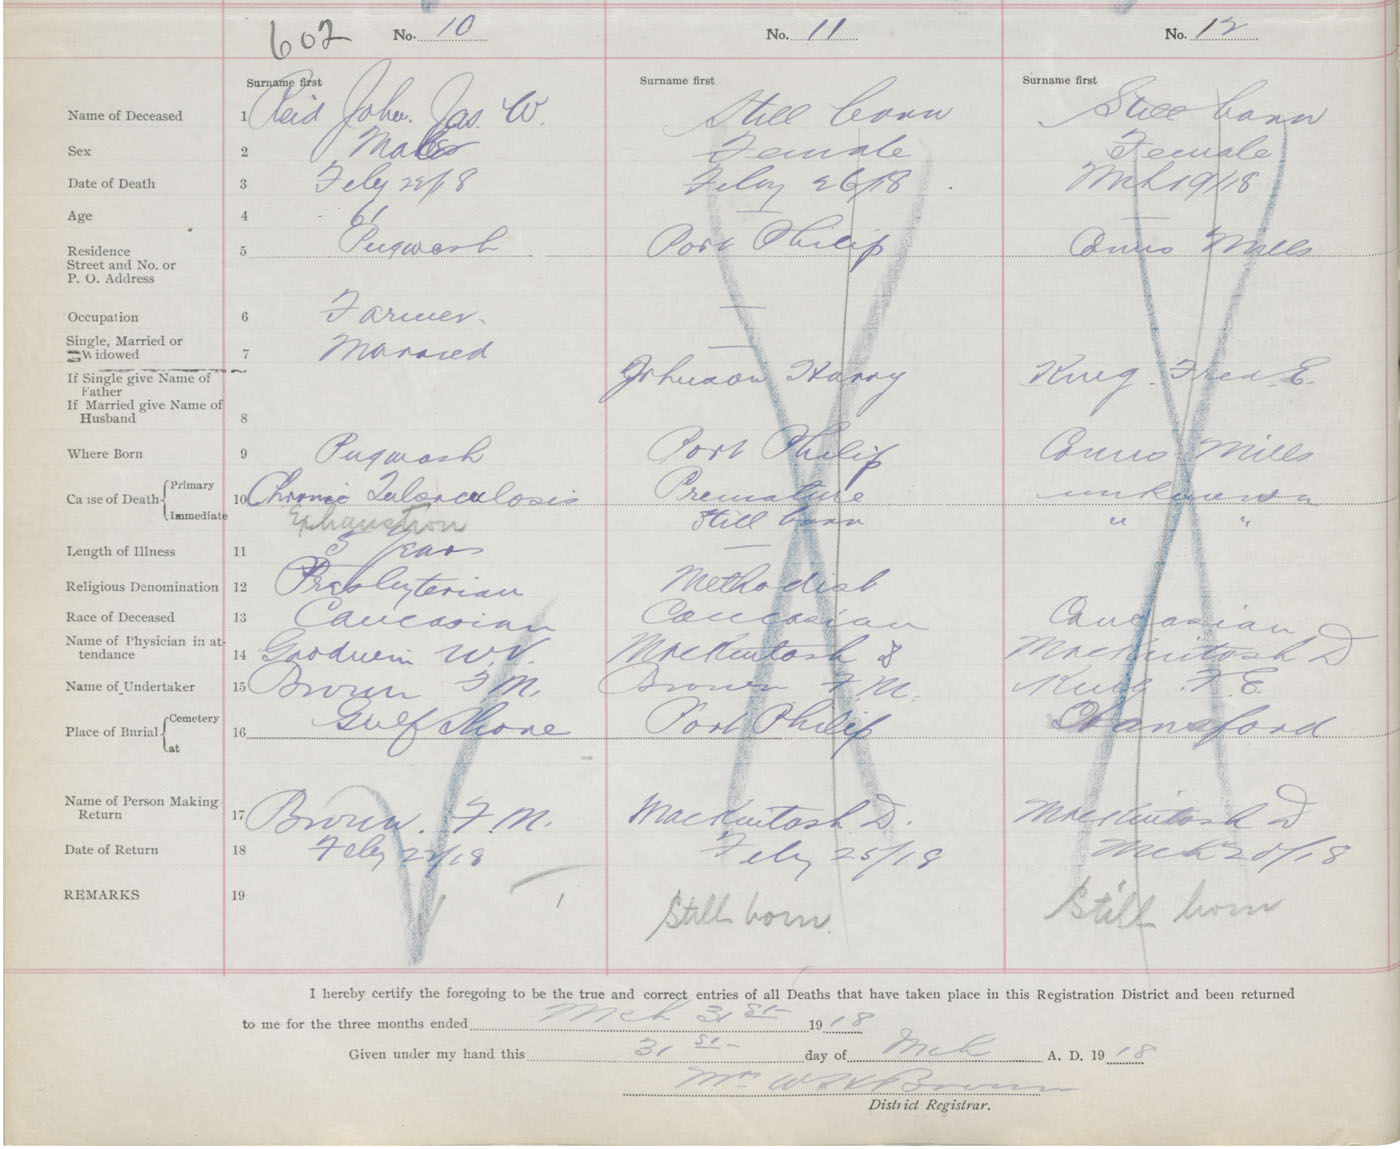 602 No. 10 No. 11 No. 12
Surname first Surname first Surname first
Name of Deceased 1 Reid John. Jas. W. Still born Still born
Sex 2 Male Female Female
Date of Death 3 Feby 22/18 Feby 26/18 Mch 19/18
Age 4 61 — —
Residence 5 Pugwash Port Philip Conns Mills
Street and No. or
P. O. Address
Occupation 6 Farmer. —
Single, Married or
Widowed 7 Married —
If Single give Name of Johnson Harry King. Fred. E.
Father
If Married give Name of
Husband 8
Where Born 9 Pugwash Port Philip Conns Mills
Cause of Death Primary 10 Chronic Tuberculosis Premature unknown
Immediate Exhaustion Still born " "
Length of Illness 11 5 Years —
Religious Denomination 12 Presbyterian Methodist
Race of Deceased 13 Caucasian Caucasian Caucasian
Name of Physician in at-
tendance 14 Goodwin W.V. MacKintosh D MacKintosh D
Name of Undertaker 15 Brown F.M. Brown F.M. King F.E.
Place of Burial Cemetery 16 Gulf Shore Port Philip Hansford
at
Name of Person Making
Return 17 Brown. F.M. MacKintosh D. MacKintosh D
Date of Return 18 Feby 22/18 Feby 25/18 Mch 20/18
REMARKS 19 Still born. Still born
I hereby certify the foregoing to be the true and correct entries of all Deaths that have taken place in this Registration District and been returned
to me for the three months ended Mch 31st- 1918
Given under my hand this 31st- day of Mch A. D. 1918
Mrs W Brown
District Registrar.